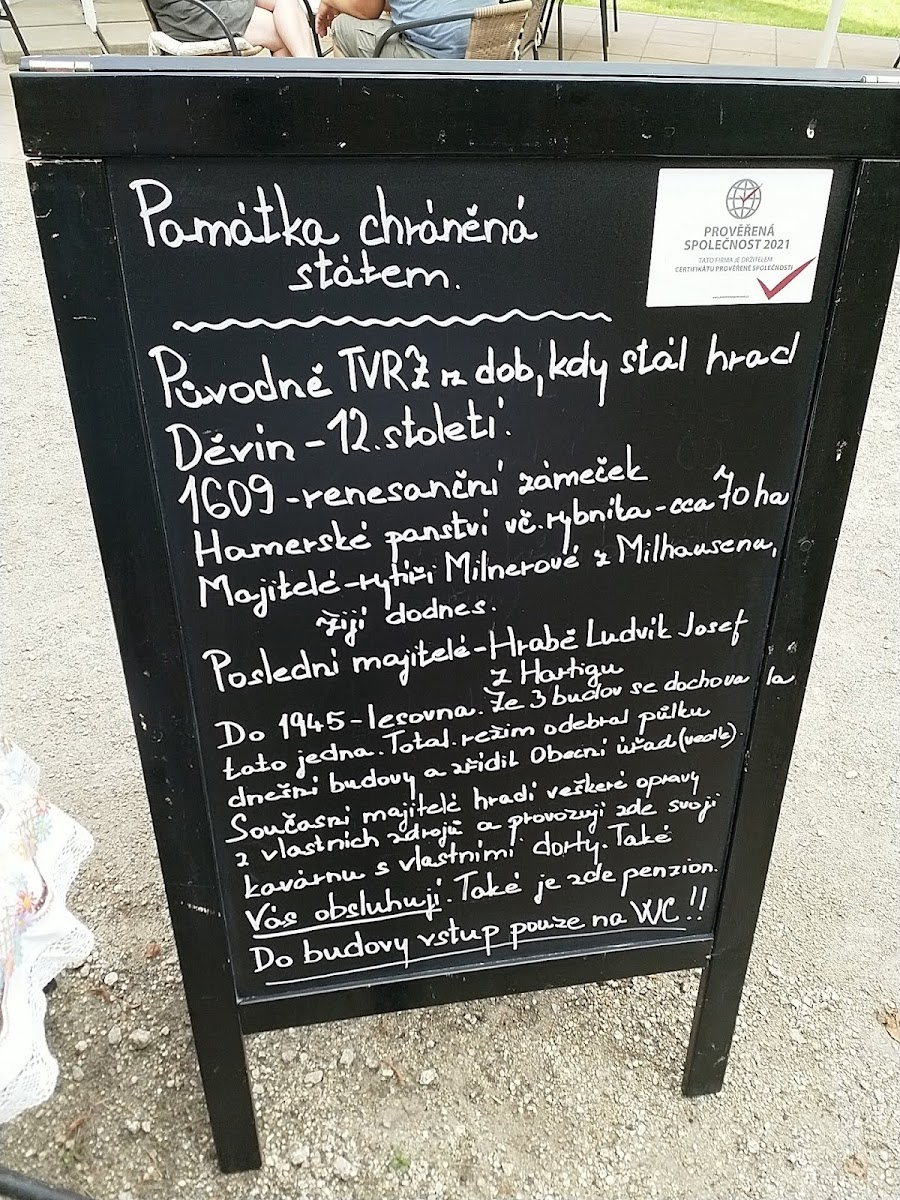 Památka chráněná
státem.
PROVĚŘENÁ
SPOLEČNOST 2021
TATO FIRMA JE DRŽITELEM
CERTIFIKÁTU PROVĚŘENÉ SPOLEČNOSTI
Původně TVRZ z dob, kdy stál hrad
Děvin - 12. století.
1609 - renesanční zámeček
Hamerské panství vč. rybníka - cca 70 ha
Majitelé - rytíři Milnerové z Milhausenu,
žijí dodnes.
Poslední majitelé - Hrabě Ludvík Josef
z Hartigu
Do 1945 - lesovna. Ze 3 budov se dochovala
tato jedna. Total. režim odebral půlku
dnešní budovy a zřídil Obecní úřad (vedle).
Současní majitelé hradí veškeré opravy
z vlastních zdrojů a provozují zde svoji
kavárnu s vlastními dorty. Také
Vás obsluhují. Také je zde penzion.
Do budovy vstup pouze na WC!!